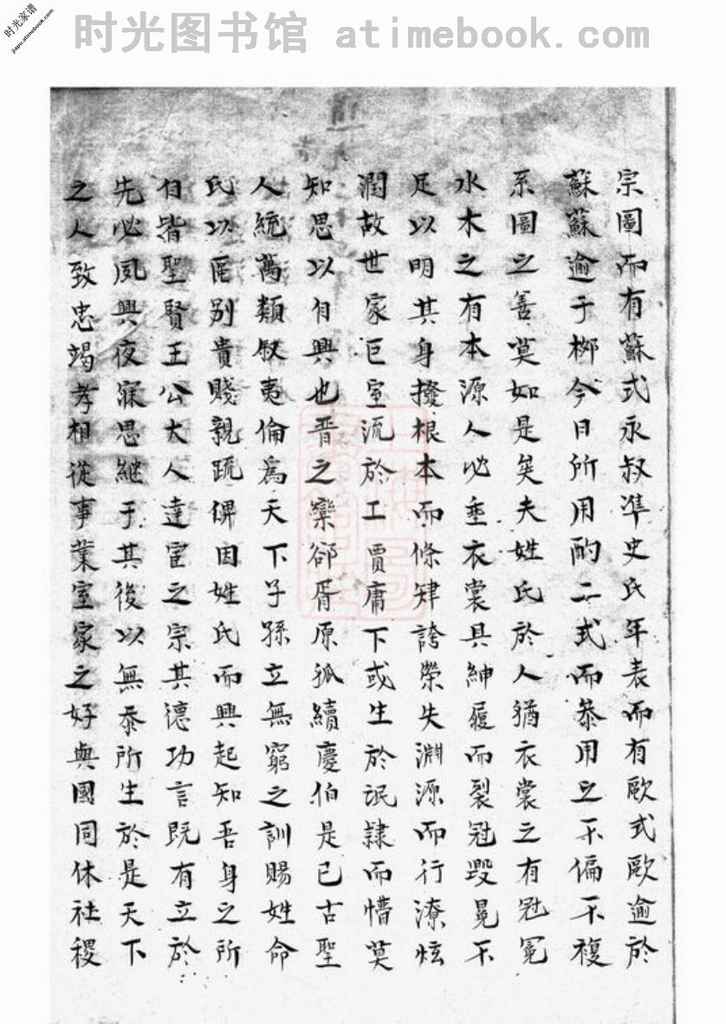 时光家谱
jiapu.atimebook.com
时光图书馆 atimebook.com
宗圖而有蘇式永叔準史氏年表而有歐式歐逾於
蘇蘇逾于栁今日所用酌二式而叅用之不偏不複
系圖之善莫如是矣夫姓氏於人猶衣裳之有冠冕
水木之有本源人必垂衣裳具紳履而裂冠毀冕不
足以明其身撥根本而條肄誇榮失淵源而行潦炫
潤故世家巨室流於工賈庸下或生於氓隸而懵莫
知思以自興也晋之欒郤胥原狐續慶伯是已古聖
人統萬類叙夷倫為天下子孫立無窮之訓賜姓命
氏以區别貴賤親疏俾因姓氏而興起知吾身之所
自皆聖賢王公大人達官之宗其德功言既有立於
先必夙興夜寐思継于其後以無忝所生於是天下
之人致忠竭孝相從事業室家之好與國同休社稷